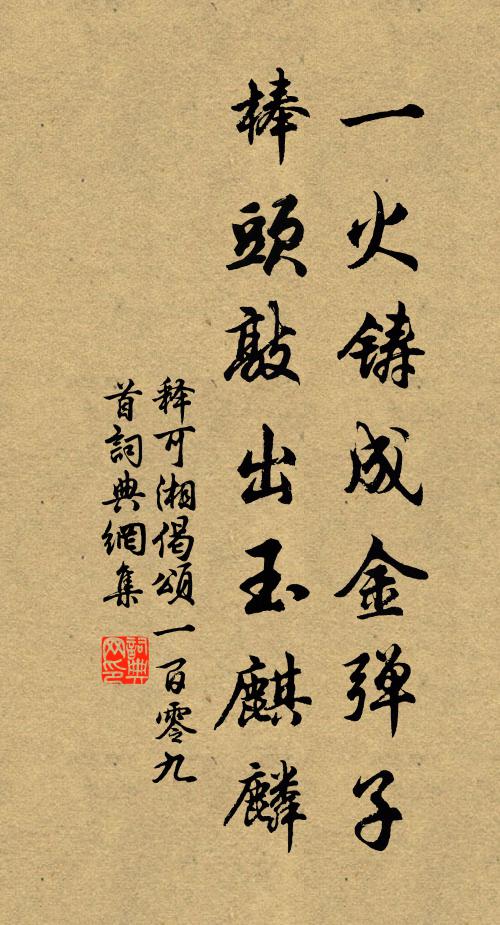 一火铸成金弹子
棒頭敲出玉麒麟
释可湘偈頌一百零九
首詞典網集
詞典
网印